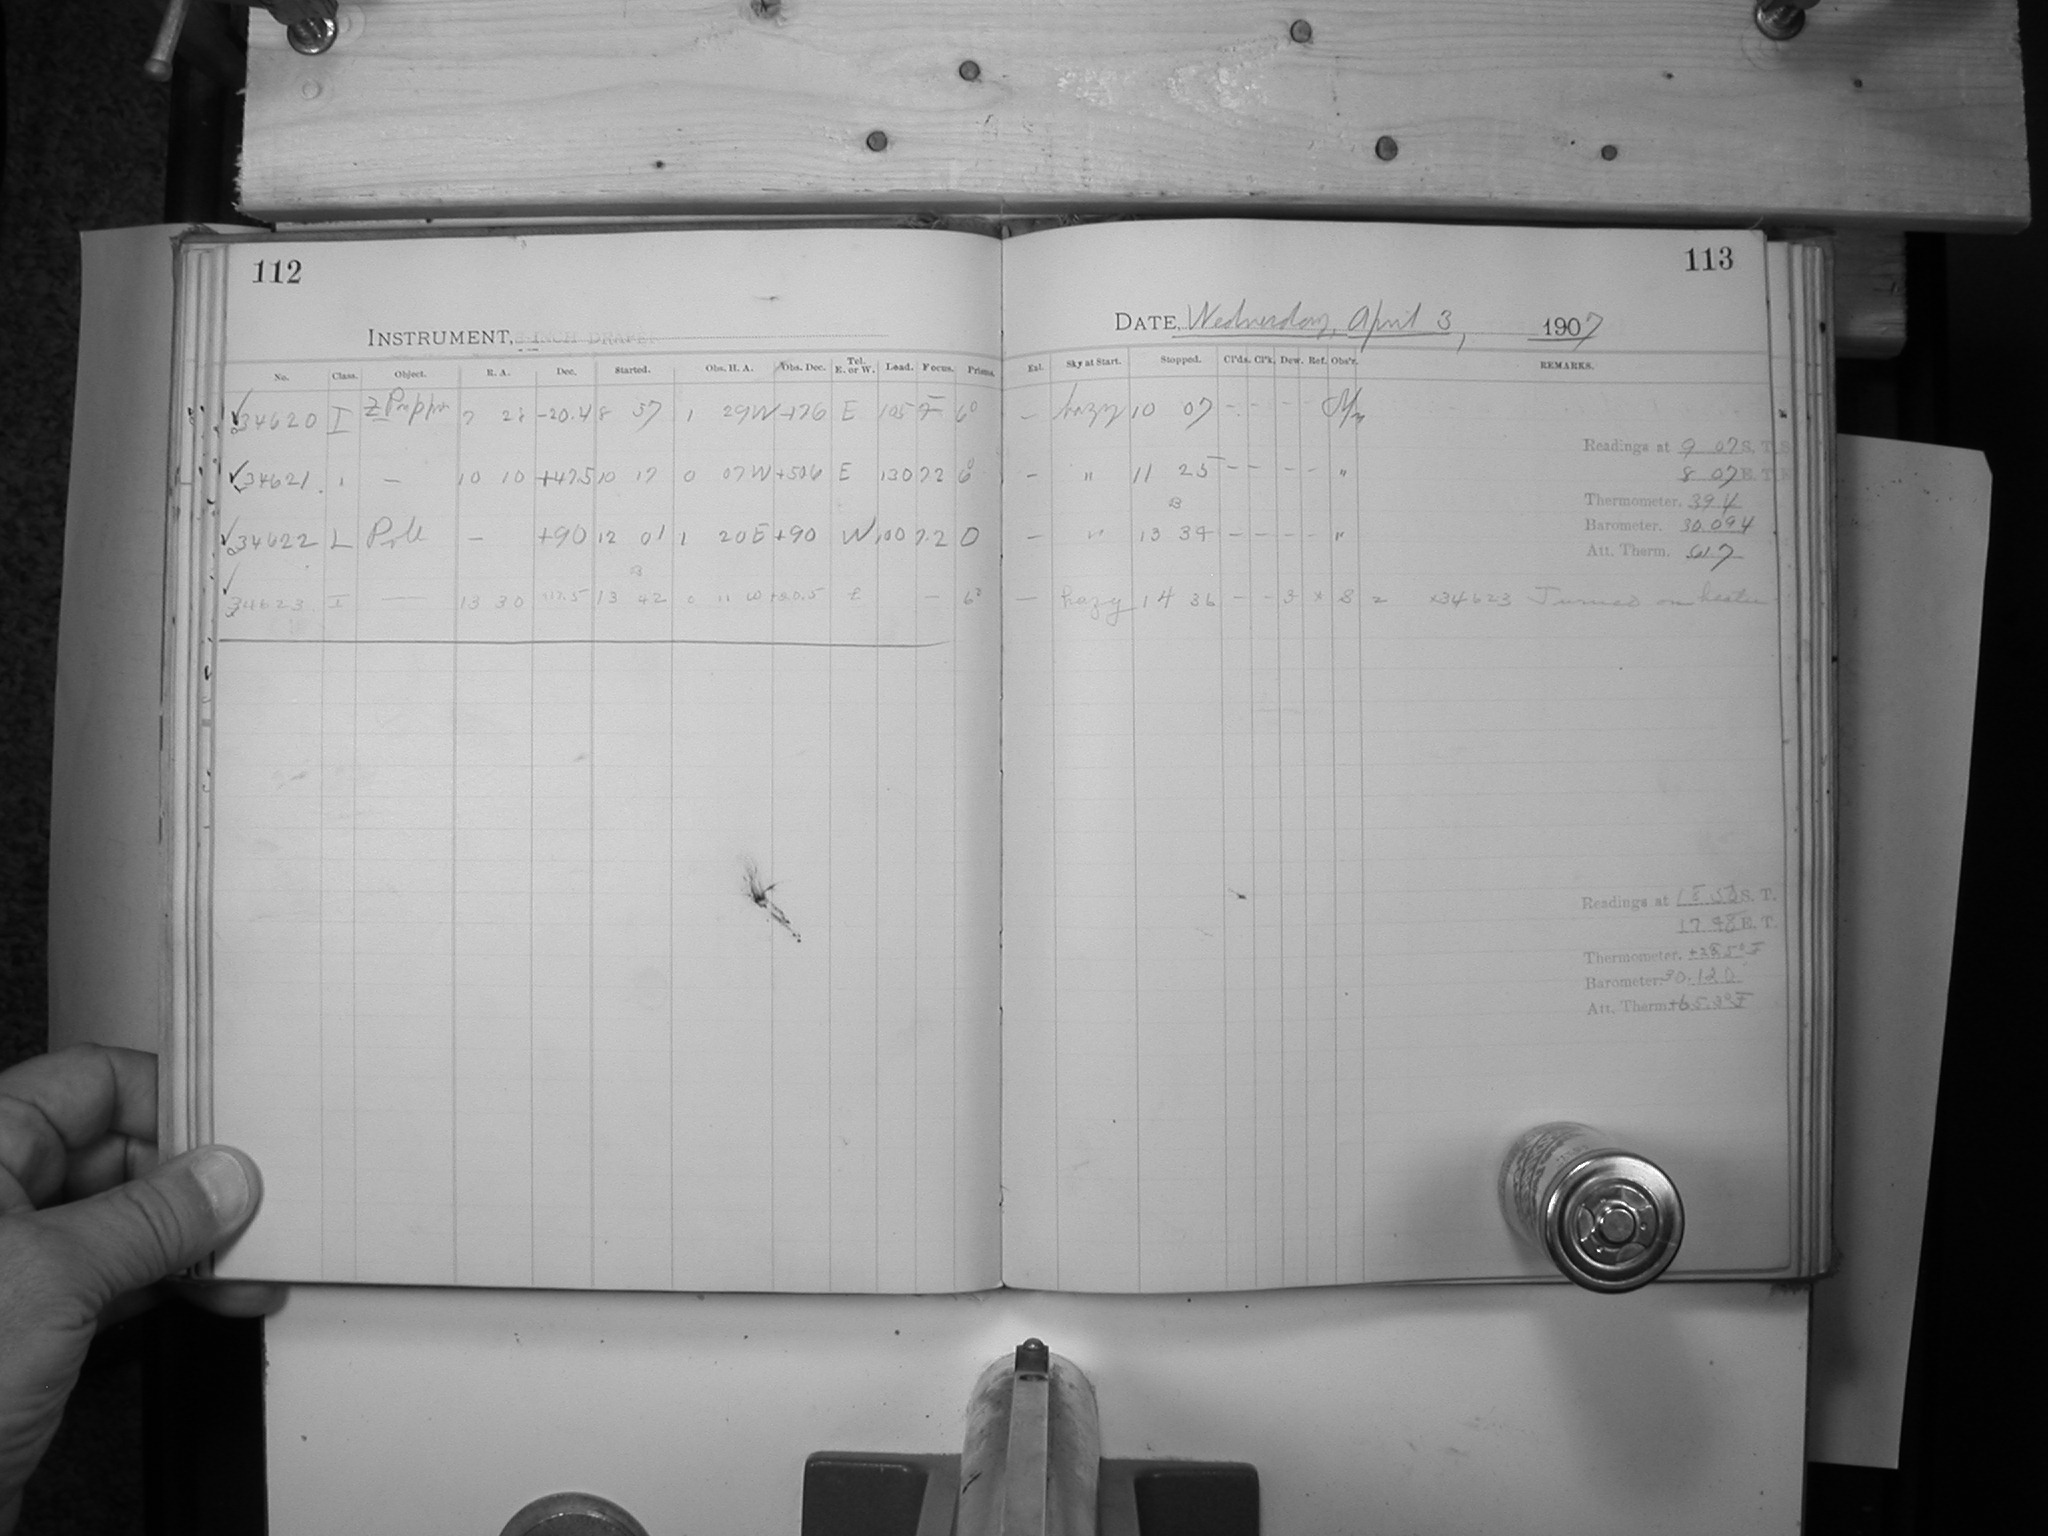 112
113
INSTRUMENT, 8-INCH DRAPER
DATE, Wednesday, April 3, 1907
No. Class. Object. R. A. Dec. Started. Obs. H. A. Obs. Dec. Tel. E. or W. Load. Focus. Prisms. Exl. Sky at Start. Stopped. Cl'ds. Cl'k. Dew. Ref. Obs'r. REMARKS.
34620 I Z Puppis 7 28 -20.4 8 57 1 29W E 105 6° - hazy 10 07 - - - -
Readings at 9 07 S. T.
34621 - 10 10 +47.5 10 17 0 07W +50.6 E 130 7.2 6° - " 11 25 - - - - "
8 07 E. T.
Thermometer. 39.4
34622 L Pole - +90 12 01 1 20E +90 W 100 7.2 0 - " 13 34 - - - - "
Barometer. 30.094
Att. Therm.
34623 I - 13 30 13 42 0 11 W +20.5 E - 6° - hazy 14 36 - - 3 * 8 2 *34623 Turned on heater
Readings at S. T.
E. T.
Thermometer.
Barometer. 30.120
Att. Therm.